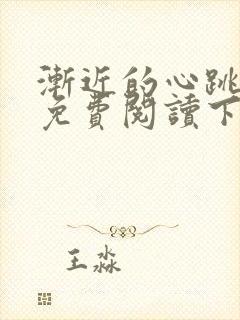 漸近的心跳
免費閱讀下
王淼